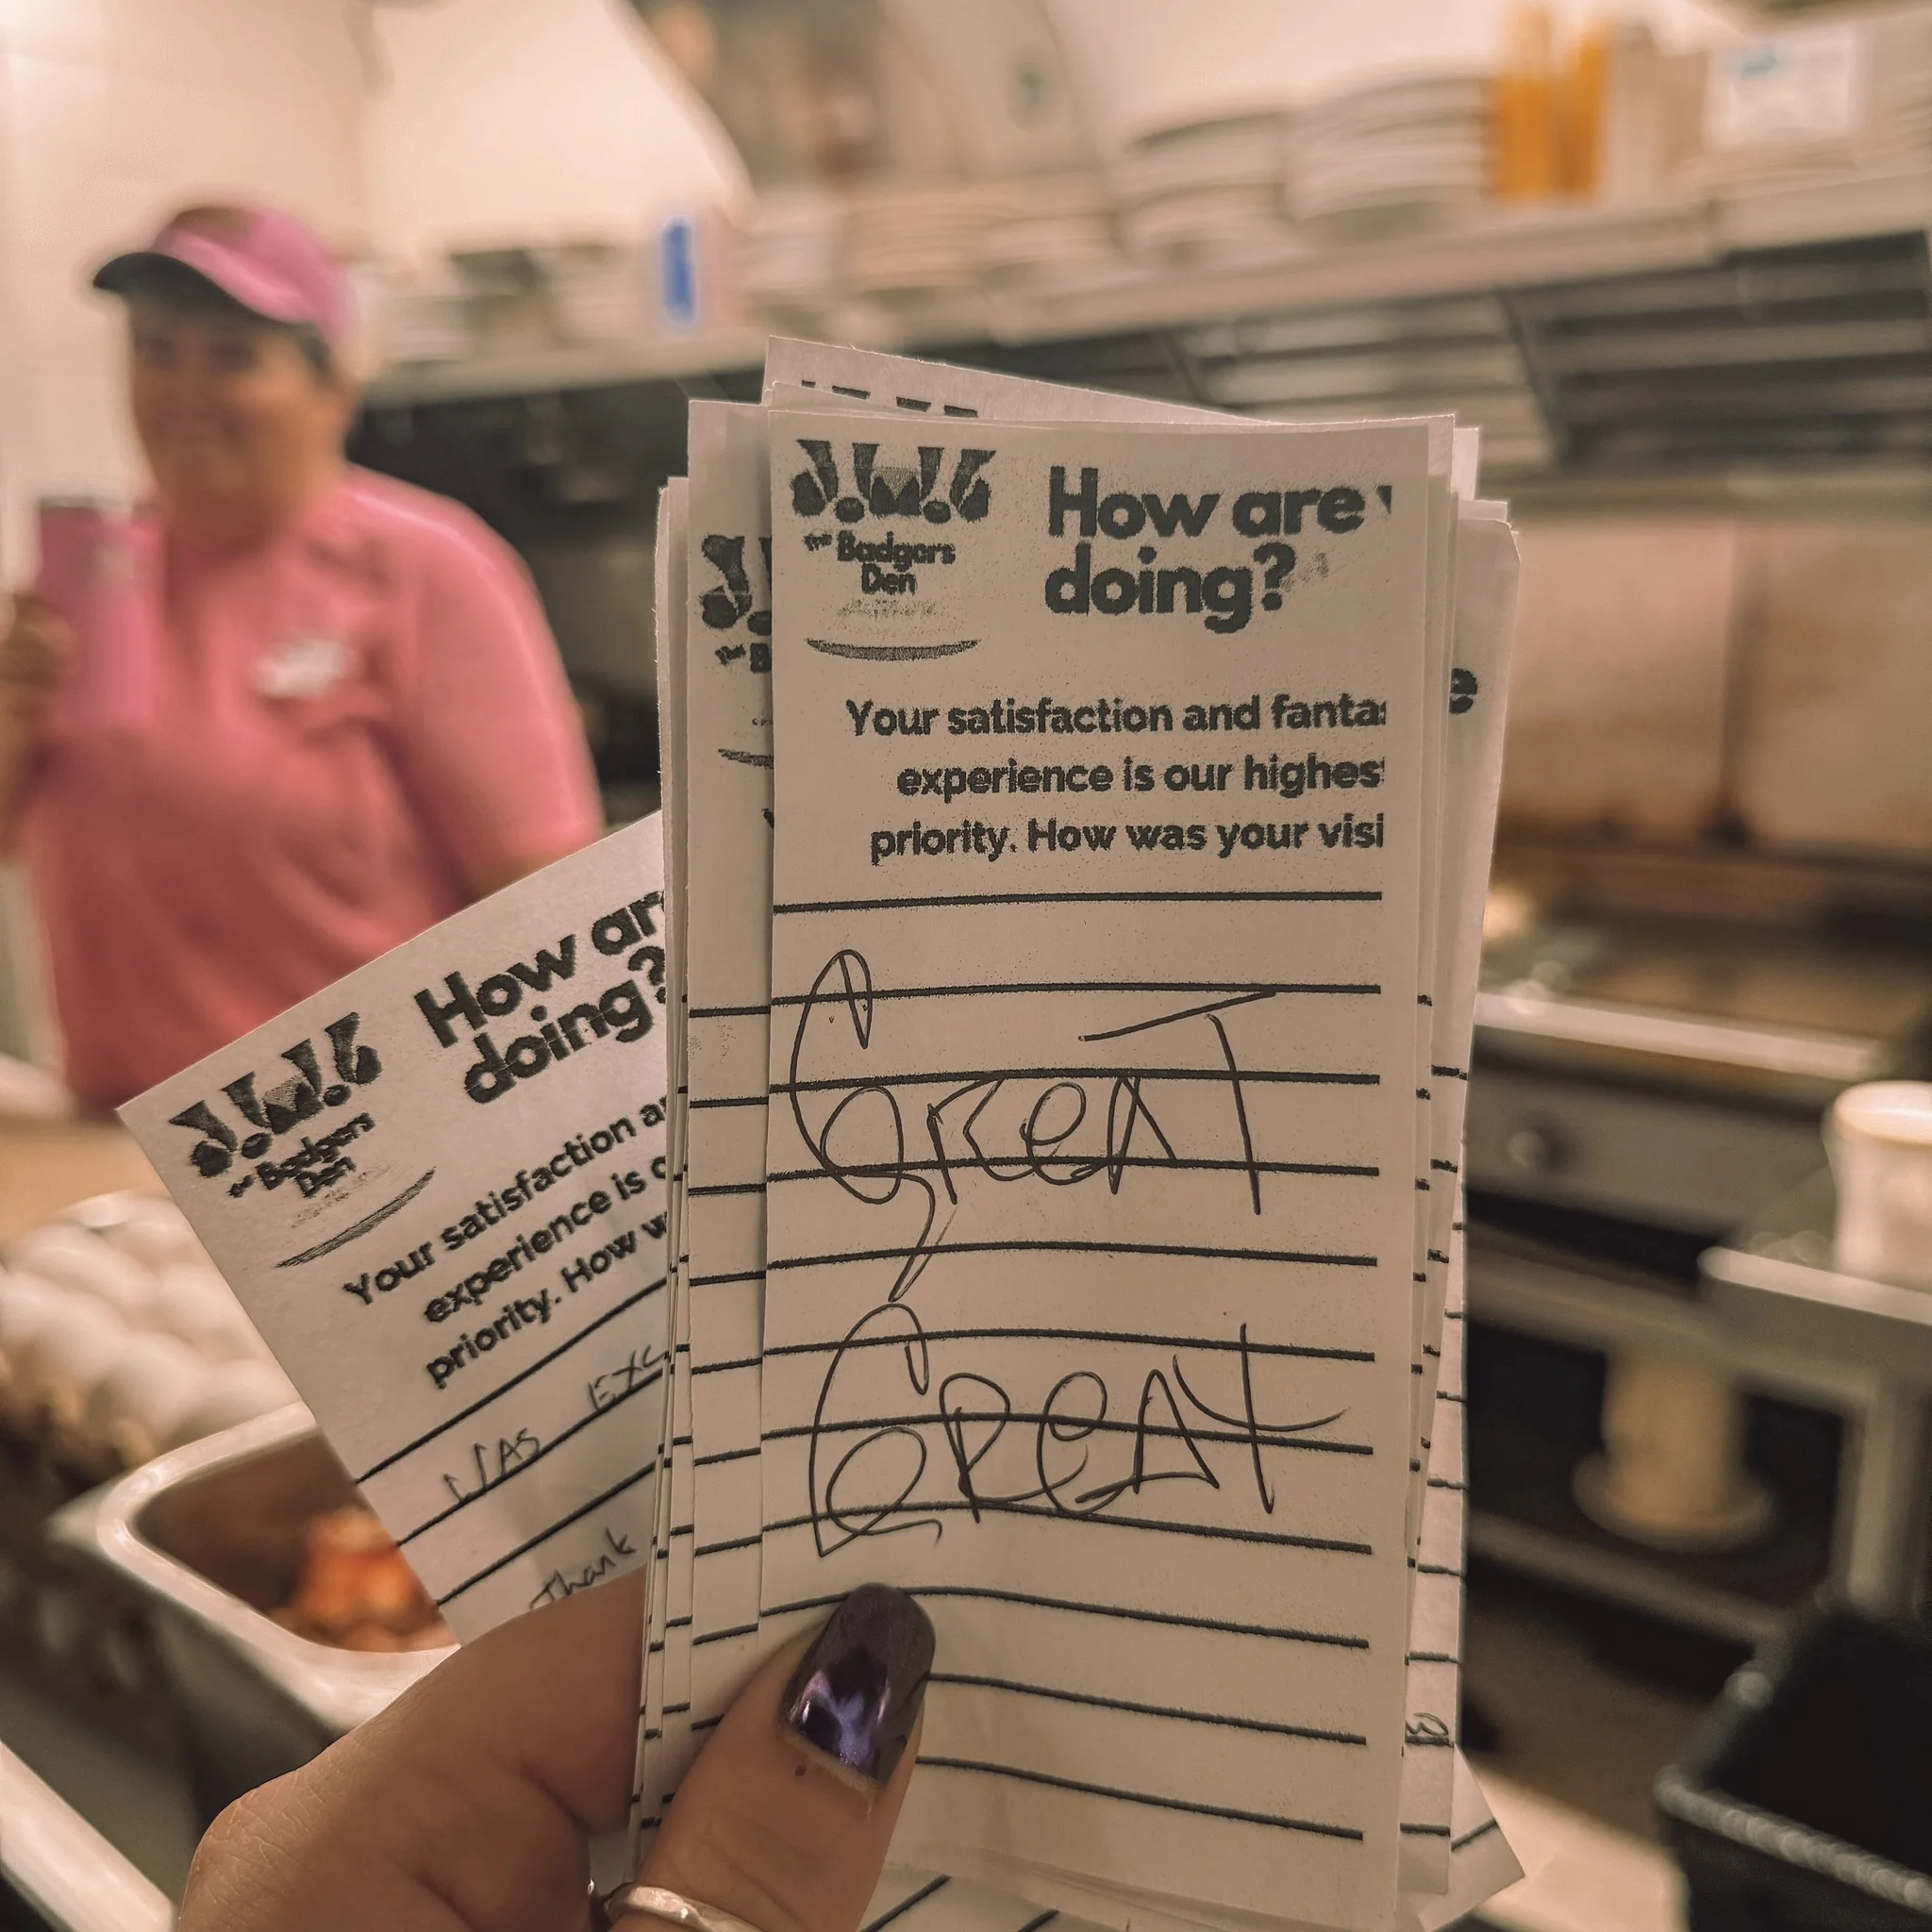 The Badgers
Den
How are
doing?
Your satisfaction and
experience is our
priority. How was your
GREAT
GREAT
The Badgers
Den
How
doing?
Your satisfaction
experience is
priority. How
WAS
Thank